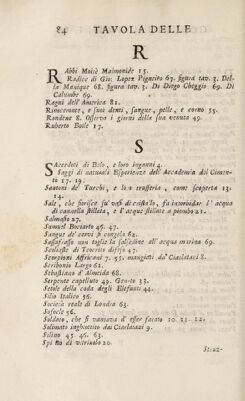 84 TAVOLA DELLE
R
Rabbi Moisè Maimonide 15.
Radice di Gio: Lopez Pigneiro 67. figura tav. 3. Del-
la Manique 68. figura tav. 3. Di Diego Cheggio 69. Di
Calumbe 69.
Ragni dell'America 81.
Rinocerонте, e suoi denti, sangue, pelle, e corno 55.
Rondene 8. Osserva i giorni della sua venuta 49.
Ruberto Boile 17.
S
Sacerdoti di Belo, e loro inganni 4.
Saggi di naturali Esperienze dell'Accademia del Cimen-
to 17. 19.
Santoni de' Turchi, e loro trufferia, come scoperta 13.
14.
Sale, che ferisce su' vasi di cristallo, fa intorbidar l'acqua
di cannella stillata, e l'acque stillate a piombo 21.
Salmasto 27.
Samuel Bociarto 45. 47.
Sangue de' cervi si congela 62.
Sassafrasso non toglie la salsedine all'acqua marina 69.
Scoliaste di Teocrito difeso 47.
Scorpioni Affricani 7. 55. mangiati da' Ciarlatani 8.
Scribonio Largo 61.
Sebastiano d'Almeida 68.
Serpente capelluto 49. Cento 33.
Setole della coda degli Elefanti 44.
Silio Italico 56.
Società reale di Londra 63.
Sofocle 56.
Soldato, che si vantava d'esser facato 10. 23. 22.
Solimato inghiottito dai Ciarlatani 9.
Solino 45. 46. 63.
Spirito di vitriuolo 20.